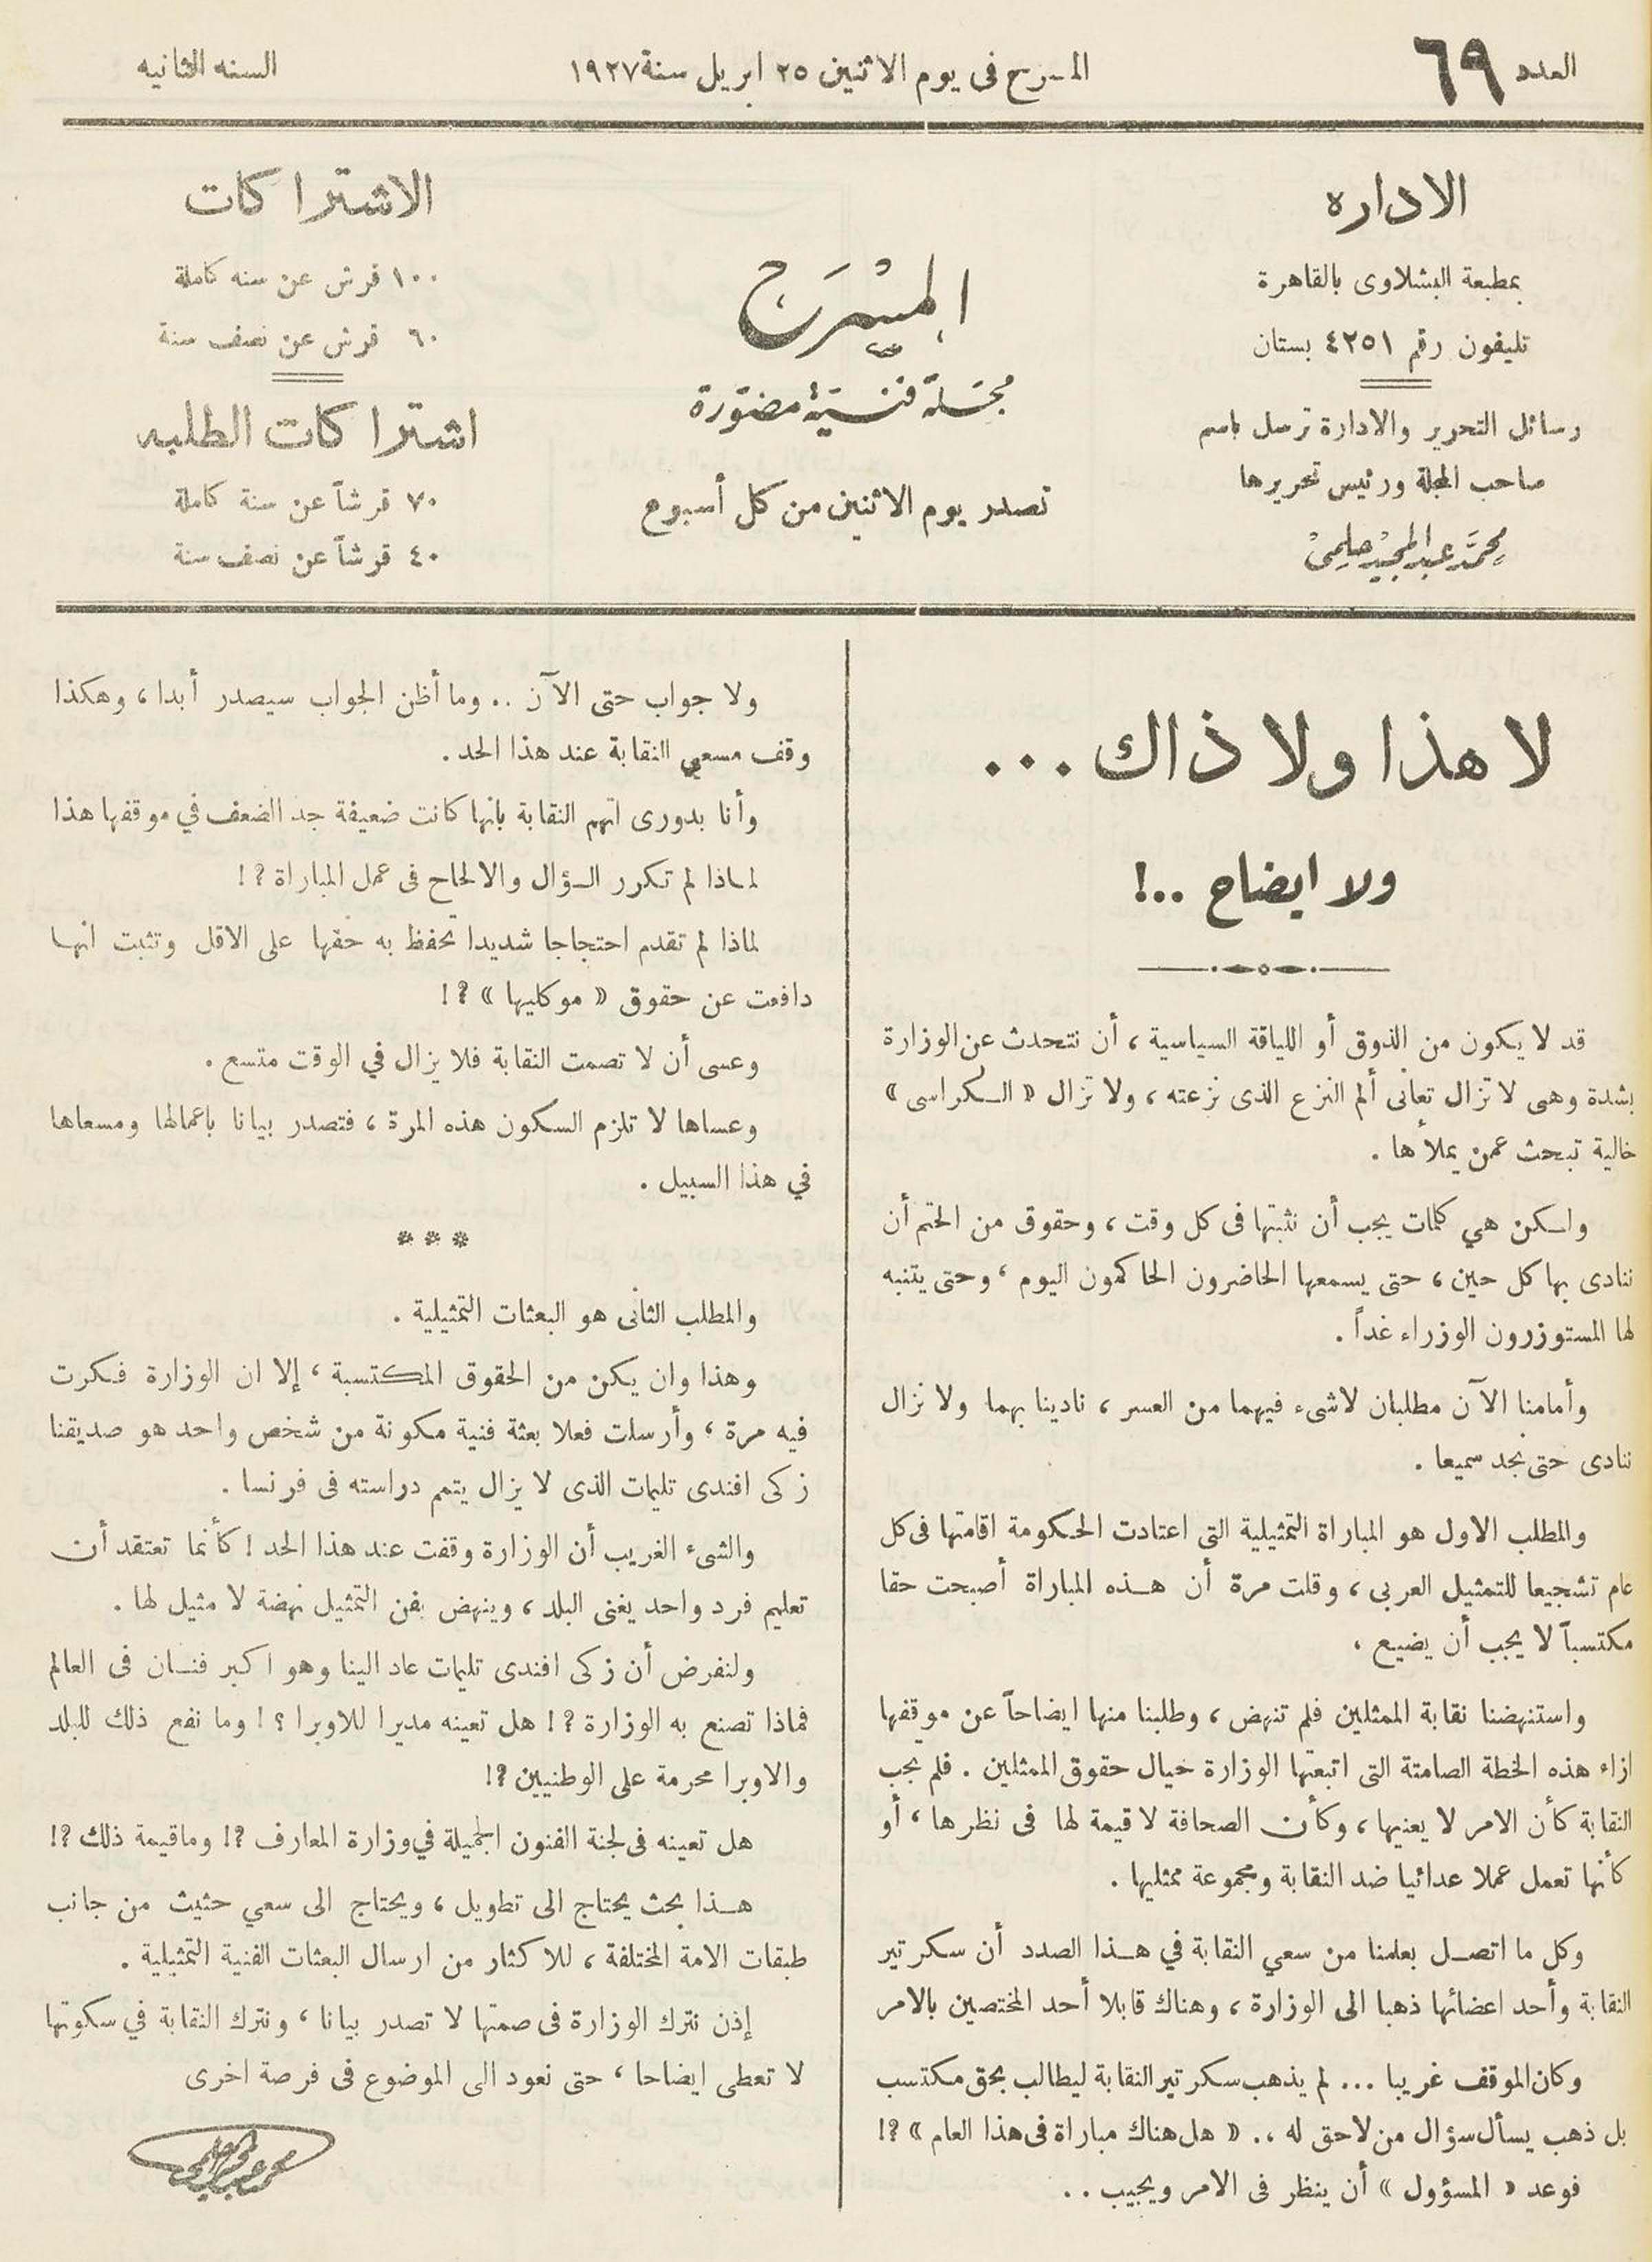 العدد ٦٩
المسرح فى يوم الاثنين ٢٥ ابريل سنة ١٩٢٧
السنه الثانيه
الاداره
بمطبعة البشلاوى بالقاهرة
تليفون رقم ٤٢٥١ بستان
رسائل التحرير والادارة ترسل باسم
صاحب المجلة ورئيس تحريرها
محمد عبد المجيد حلمى
المسرح
مجلة فنية مصورة
تصدر يوم الاثنين من كل أسبوع
الاشتراكات
١٠٠ قرش عن سنه كاملة
٦٠ قرش عن نصف سنة
اشتراكات الطلبه
٧٠ قرشاً عن سنة كاملة
٤٠ قرشاً عن نصف سنة
لا هذا ولا ذاك . . .
ولا ايضاح ..!
قد لا يكون من الذوق أو اللياقة السياسية ، أن نتحدث عن الوزارة
بشدة وهى لا تزال تعانى ألم النزع الذى نزعته ، ولا تزال « الكراسى »
خالية تبحث عمن يملأها .
ولكن هي كلمات يجب أن نثبتها فى كل وقت ، وحقوق من الحتم أن
ننادى بها كل حين ، حتى يسمعها الحاضرون الحاكمون اليوم ، وحتى يتنبه
لها المستوزرون الوزراء غداً .
وأمامنا الآن مطلبان لاشىء فيهما من العسر ، نادينا بهما ولا نزال
ننادى حتى نجد سميعا .
والمطلب الاول هو المباراة التمثيلية التى اعتادت الحكومة اقامتها فى كل
عام تشجيعا للتمثيل العربى ، وقلت مرة أن هذه المباراة أصبحت حقا
مكتسباً لا يجب أن يضيع ،
واستنهضنا نقابة الممثلين فلم تنهض ، وطلبنا منها ايضاحاً عن موقفها
ازاء هذه الخطة الصامتة التى اتبعتها الوزارة حيال حقوق الممثلين . فلم تجب
النقابة كأن الامر لا يعنيها ، وكأن الصحافة لا قيمة لها فى نظرها ، أو
كأنها تعمل عملا عدائيا ضد النقابة ومجموعة ممثليها .
وكل ما اتصل بعلمنا من سعي النقابة في هذا الصدد أن سكرتير
النقابة وأحد اعضائها ذهبا الى الوزارة ، وهناك قابلا أحد المختصين بالامر
وكان الموقف غريبا ... لم يذهب سكرتير النقابة ليطالب بحق مكتسب
بل ذهب يسأل سؤال من لاحق له .. « هل هناك مباراة فى هذا العام » ؟!
فوعد « المسؤول » أن ينظر فى الامر ويجيب . .
ولا جواب حتى الآن .. وما أظن الجواب سيصدر أبدا ، وهكذا
وقف مسعي النقابة عند هذا الحد .
وأنا بدورى اتهم النقابة بانها كانت ضعيفة جد الضعف في موقفها هذا
لماذا لم تكرر السؤال والالحاح فى عمل المباراة ؟!
لماذا لم تقدم احتجاجا شديدا تحفظ به حقها على الاقل وتثبت انها
دافعت عن حقوق « موكليها » ؟!
وعسى أن لا تصمت النقابة فلا يزال في الوقت متسع .
وعساها لا تلزم السكون هذه المرة ، فتصدر بيانا باعمالها ومسعاها
في هذا السبيل .
* * *
والمطلب الثانى هو البعثات التمثيلية .
وهذا وان يكن من الحقوق المكتسبة ، إلا ان الوزارة فكرت
فيه مرة ، وأرسلت فعلا بعثة فنية مكونة من شخص واحد هو صديقنا
زكى افندى تليمات الذى لا يزال يتمم دراسته فى فرنسا .
والشىء الغريب أن الوزارة وقفت عند هذا الحد ! كأنما تعتقد أن
تعليم فرد واحد يغنى البلد ، وينهض بفن التمثيل نهضة لا مثيل لها .
ولنفرض أن زكى افندى تليمات عاد الينا وهو اكبر فنان فى العالم
فماذا تصنع به الوزارة ؟! هل تعينه مديرا للاوبرا ؟! وما نفع ذلك للبلد
والاوبرا محرمة على الوطنيين ؟!
هل تعينه فى لجنة الفنون الجميلة في وزارة المعارف ؟! وماقيمة ذلك ؟!
هذا بحث يحتاج الى تطويل ، ويحتاج الى سعي حثيث من جانب
طبقات الامة المختلفة ، للاكثار من ارسال البعثات الفنية التمثيلية .
إذن نترك الوزارة فى صمتها لا تصدر بيانا ، ونترك النقابة في سكوتها
لا تعطى ايضاحا ، حتى نعود الى الموضوع فى فرصة اخرى
محمد عبد المجيد حلمى